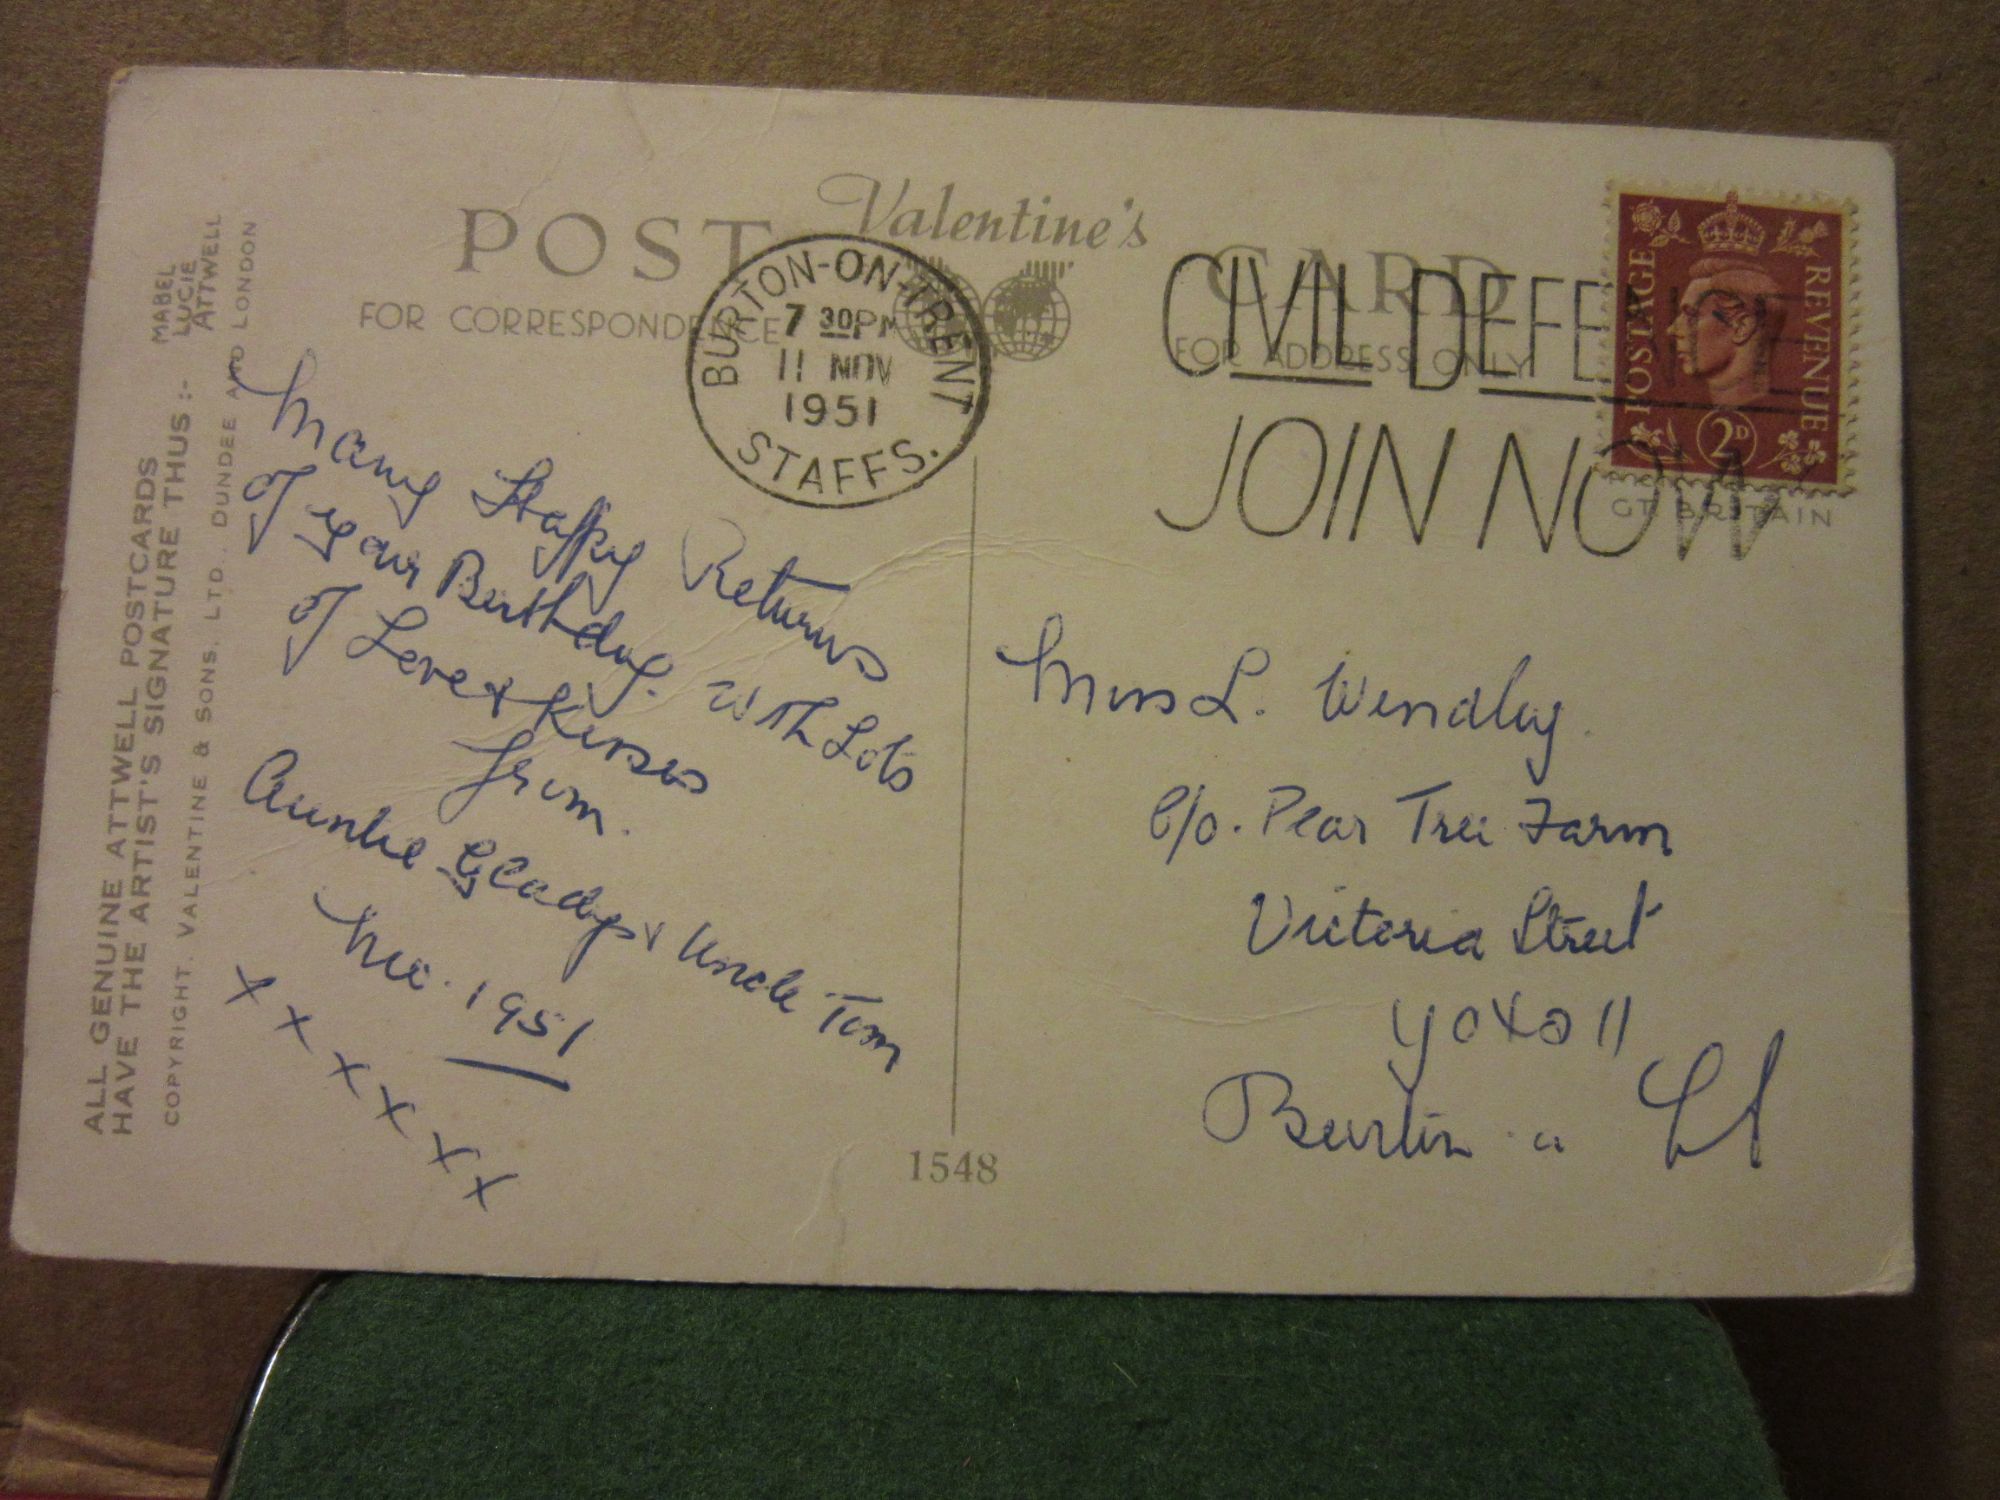 Valentine's
POST CARD
FOR CORRESPONDENCE
FOR ADDRESS ONLY
BURTON-ON-TRENT
7 30PM
11 NOV
1951
STAFFS.
CIVIL DEFENCE
JOIN NOW
POSTAGE
REVENUE
2D
GT. BRITAIN
Many Happy Returns
of your Birthday. With Lots
of Love & Kisses
from.
Auntie Gladys & Uncle Tom
1951
x x x x x x
Miss L. Wendlug.
c/o. Pear Tree Farm
Victoria Street
Yoxall
Burton
1548
ALL GENUINE ATTWELL POSTCARDS
HAVE THE ARTIST'S SIGNATURE THUS :-
MABEL
LUCIE
ATTWELL
COPYRIGHT. VALENTINE & SONS. LTD., DUNDEE AND LONDON